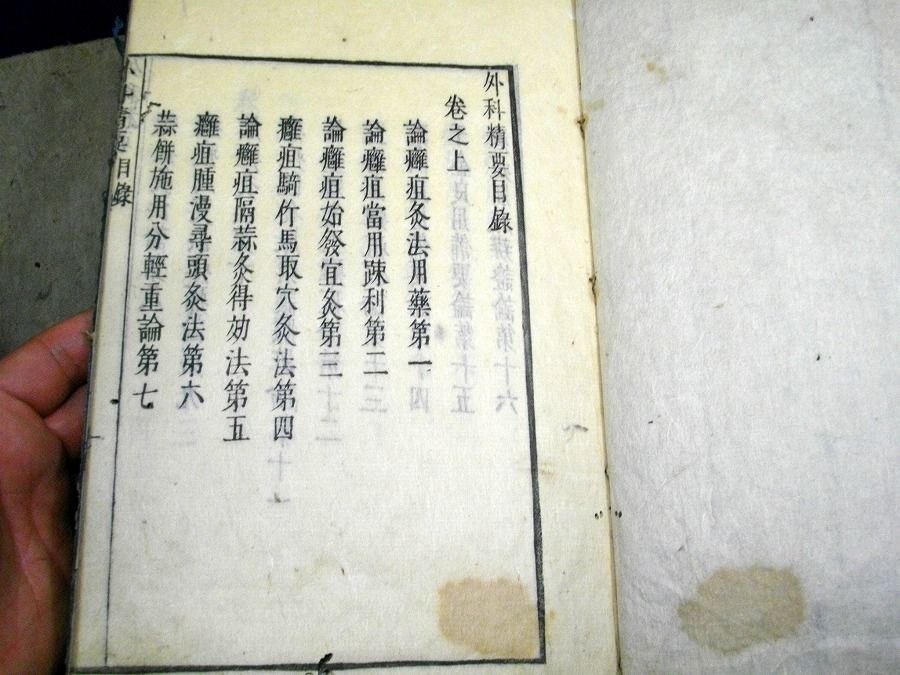 外科精要目錄
卷之上
論癰疽灸法用藥第一
論癰疽當用踈利第二
論癰疽始發宜灸第三
癰疽騎竹馬取穴灸法第四
論癰疽隔蒜灸得効法第五
癰疽腫漫尋頭灸法第六
蒜餅施用分輕重論第七
外科精要目錄